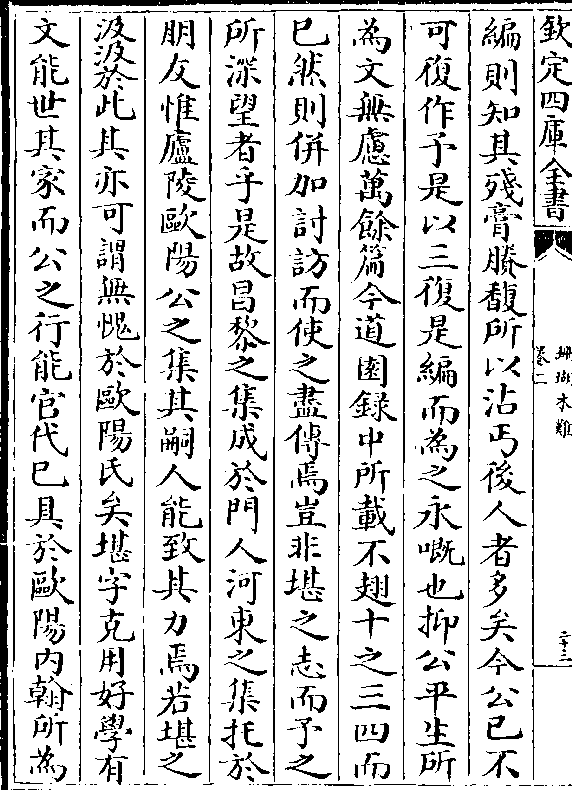 欽定四庫全書
珊瑚木難
卷二
二十三
編則知其殘膏賸馥所以沾丐後人者多矣今公已不
可復作予是以三復是編而為之永嘅也抑公平生所
為文無慮萬餘篇今道園錄中所載不翅十之三四而
已然則併加討訪而使之盡傳焉豈非堪之志而予之
所深望者乎是故昌黎之集成於門人河東之集托於
朋友惟廬陵歐陽公之集其嗣人能致其力焉若堪之
汲汲於此其亦可謂無愧於歐陽氏矣堪字克用好學有
文能世其家而公之行能官代已具於歐陽内翰所為